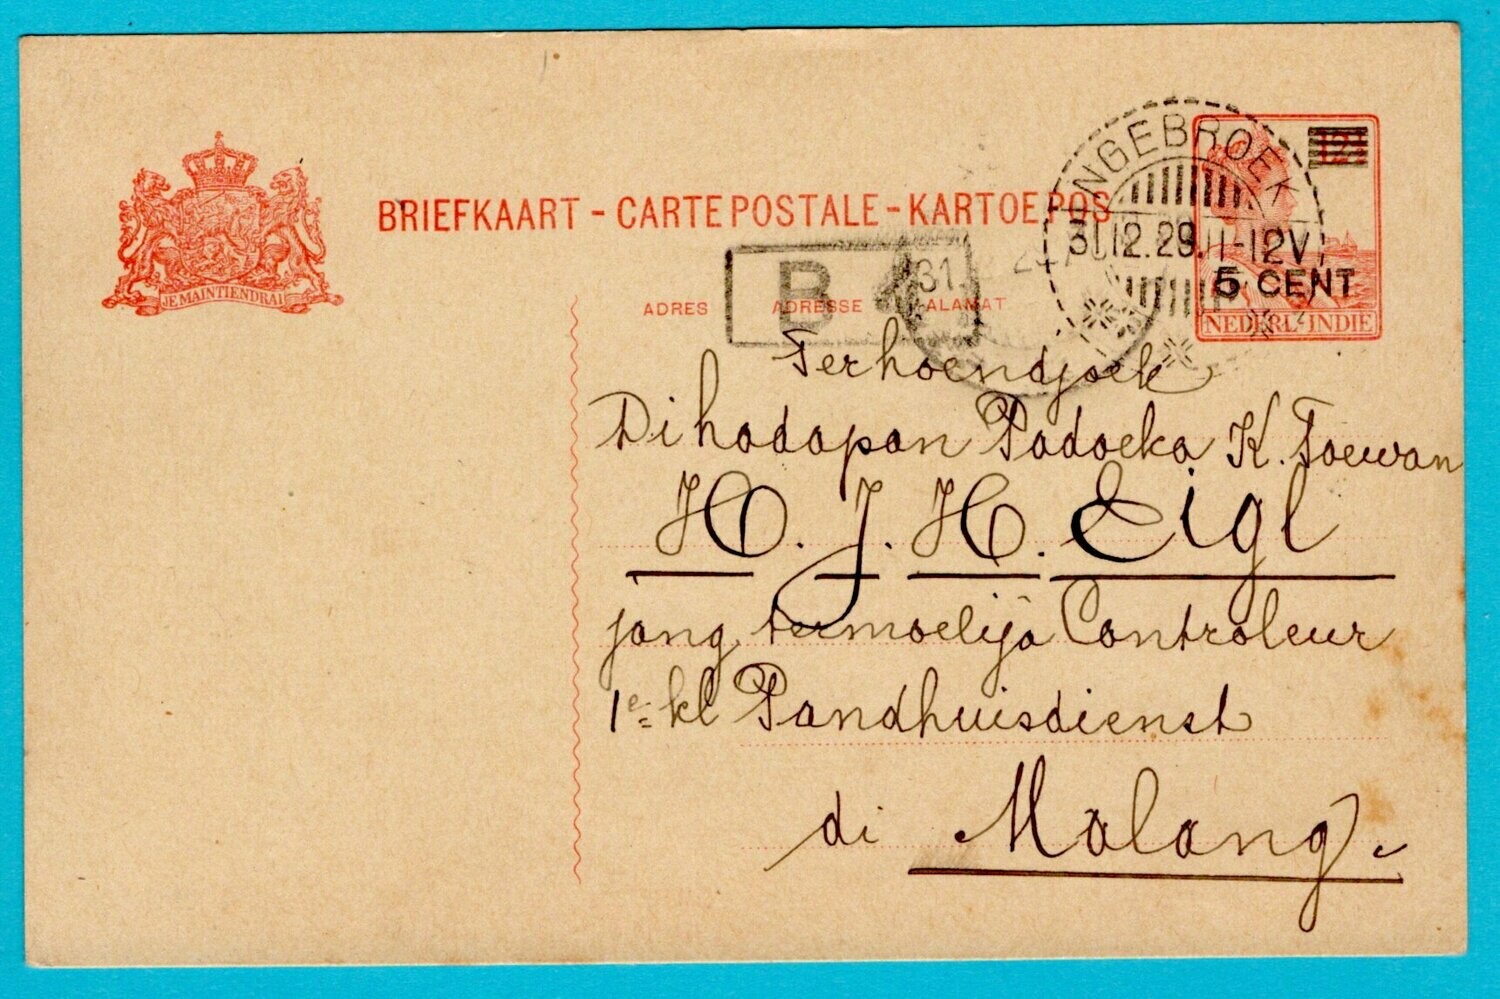 JE MAINTIENDRAI
BRIEFKAART - CARTE POSTALE - KARTOE POS
NGEBROEK
31.12.29.11-12V
5 CENT
NEDERL-INDIE
B
31.
ADRES ADRESSE ALAMAT
Terhoendjoek
Dihadapan Padoeka K. Toewan
H. J. H. Eigl
jang termoelija Controleur
1e kl Pandhuisdienst
di Malang.